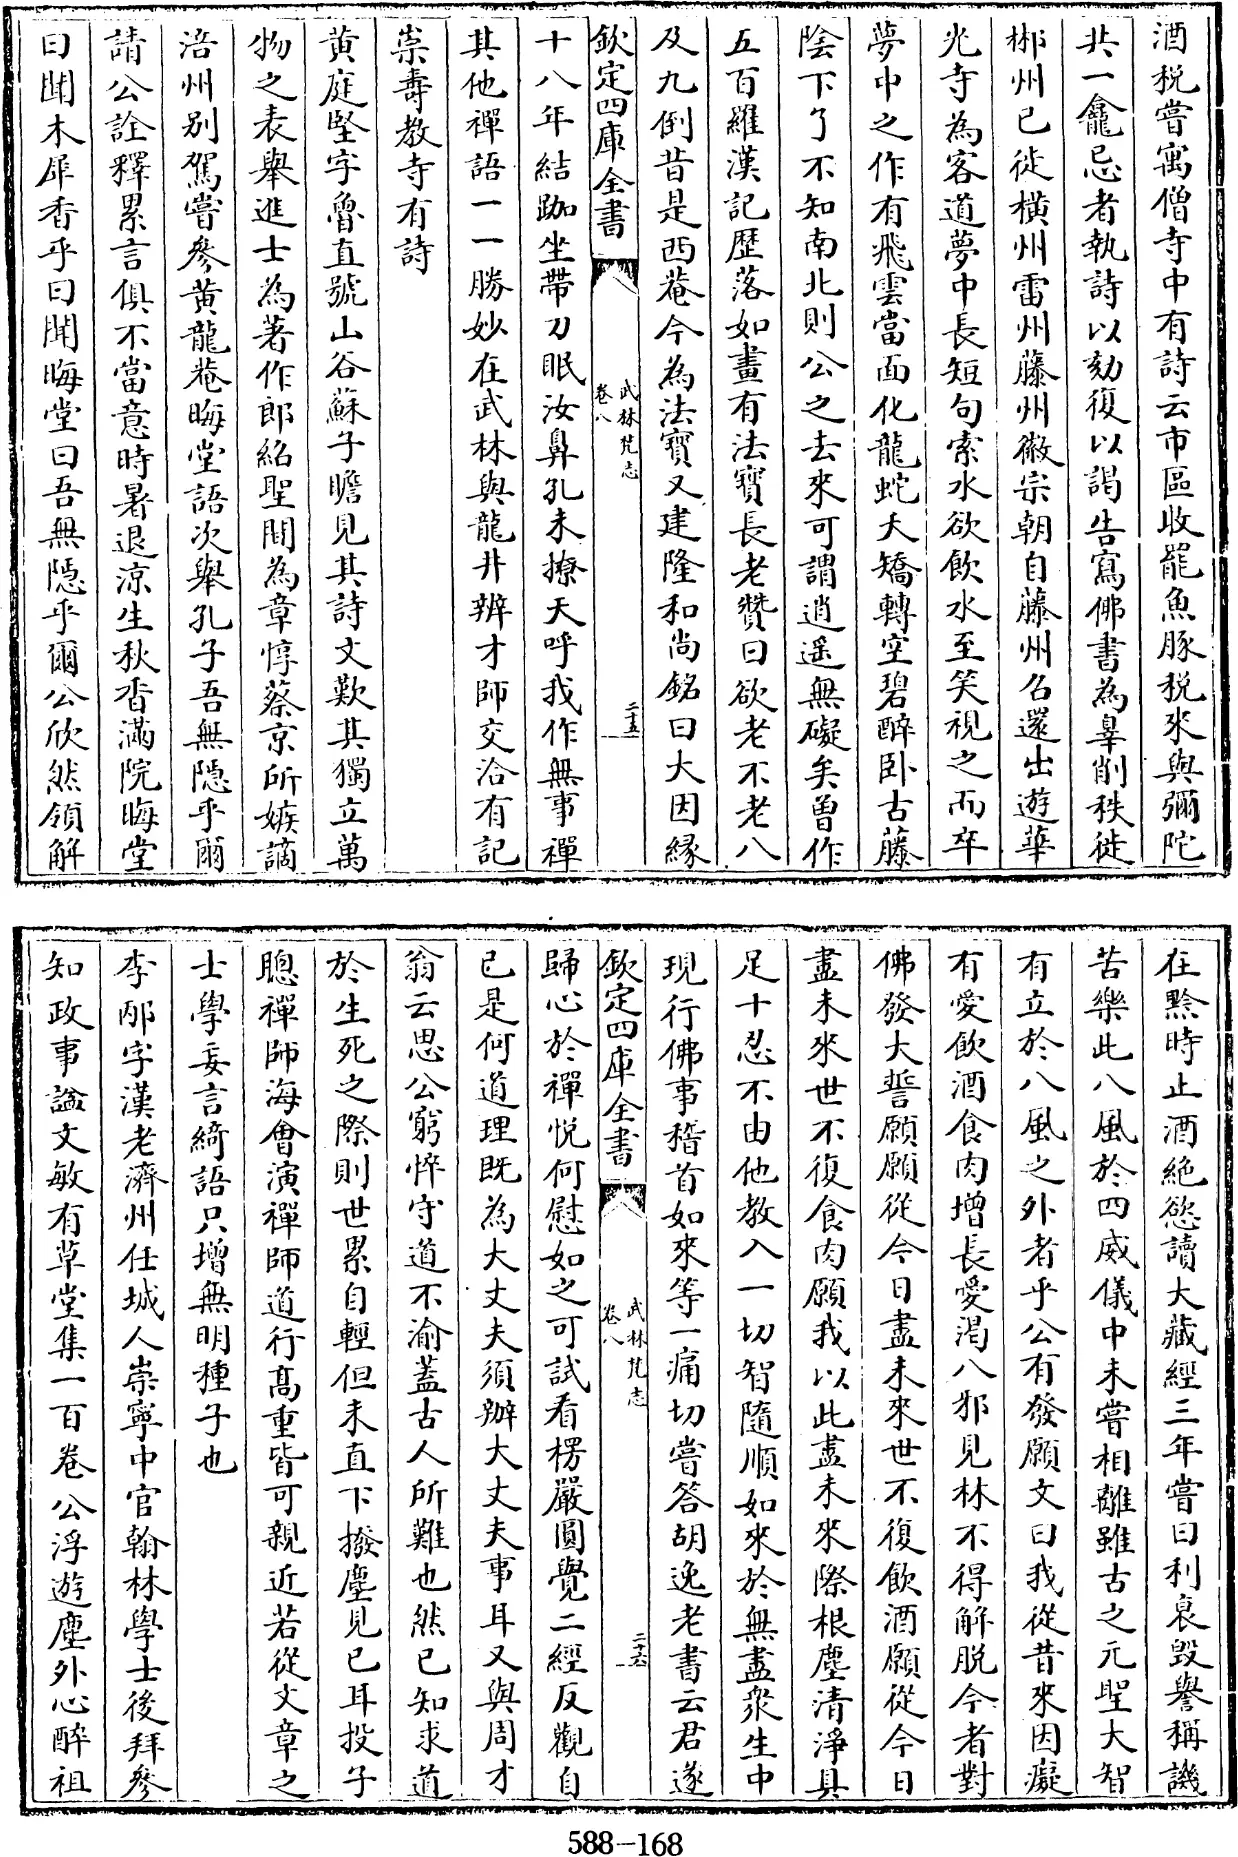 酒税嘗寓僧寺中有詩云市區收罷魚豚税來與彌陀
共一龕忌者執詩以劾復以謁告寫佛書為辠削秩徙
郴州已徙橫州雷州藤州徽宗朝自藤州召還出遊華
光寺為客道夢中長短句索水欲飲水至笑視之而卒
夢中之作有飛雲當面化龍蛇夭矯轉空碧醉卧古藤
陰下了不知南北則公之去來可謂逍遥無礙矣曽作
五百羅漢記歴落如畫有法寶長老贊曰欲老不老八
及九倒昔是西菴今為法寶又建隆和尚銘曰大因縁
欽定四庫全書
武林梵志
卷八
二十五
十八年結跏坐帶刀眠汝鼻孔未撩天呼我作無事禪
其他禪語一一勝妙在武林與龍井辨才師交洽有記
崇壽教寺有詩
黄庭堅字魯直號山谷蘇子瞻見其詩文歎其獨立萬
物之表舉進士為著作郎紹聖間為章惇蔡京所嫉謫
涪州别駕嘗參黄龍菴晦堂語次舉孔子吾無隱乎爾
請公詮釋累言俱不當意時暑退涼生秋香滿院晦堂
曰聞木犀香乎曰聞晦堂曰吾無隱乎爾公欣然領解
在黔時止酒絶慾讀大藏經三年嘗曰利衰毁譽稱譏
苦樂此八風於四威儀中未嘗相離雖古之元聖大智
有立於八風之外者乎公有發願文曰我從昔來因癡
有愛飲酒食肉增長愛渇入邪見林不得解脱今者對
佛發大誓願願從今日盡未來世不復飲酒願從今日
盡未來世不復食肉願我以此盡未來際根塵清淨具
足十忍不由他教入一切智隨順如來於無盡衆生中
現行佛事稽首如來等一痛切嘗答胡逸老書云君遂
欽定四庫全書
武林梵志
卷八
二十六
歸心於禪悦何慰如之可試看楞嚴圓覺二經反觀自
己是何道理既為大丈夫須辦大丈夫事耳又與周才
翁云思公窮悴守道不渝蓋古人所難也然已知求道
於生死之際則世累自輕但未直下撥塵見己耳投子
聰禪師海會演禪師道行高重皆可親近若從文章之
士學妄言綺語只增無明種子也
李邴字漢老濟州任城人崇寧中官翰林學士後拜參
知政事謚文敏有草堂集一百卷公浮遊塵外心醉祖
588-168